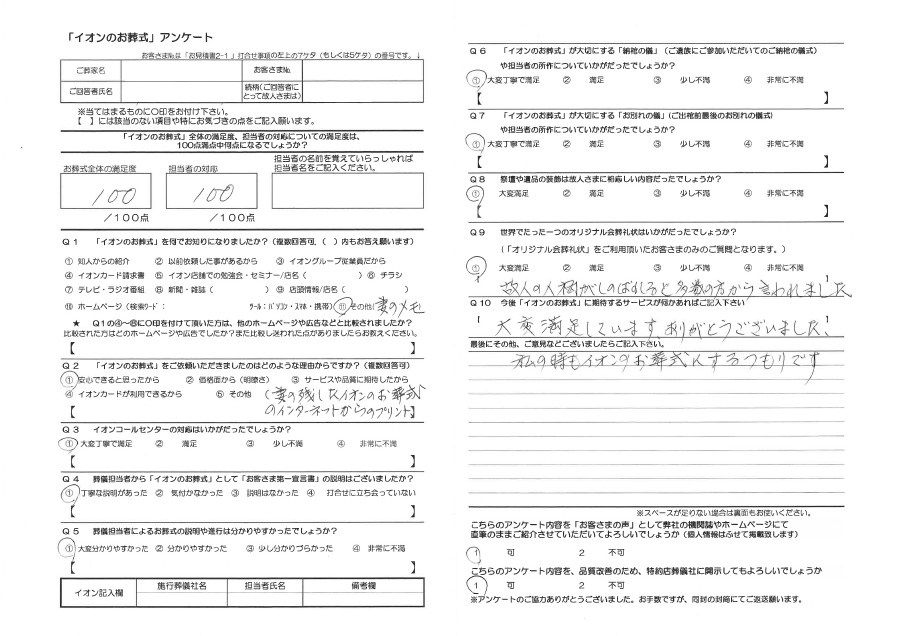 「イオンのお葬式」アンケート
お客さま№は「お見積書2-1」打合せ事項の左上のアケタ（もしくは5ケタ）の番号です。↓
ご葬家名 お客さま№
ご回答者氏名 続柄（ご回答者にとって故人さまは）
※当てはまるものに○印をお付け下さい。
【　】には該当のない項目や特にお気づきの点をご記入願います。
「イオンのお葬式」全体の満足度、担当者の対応についての満足度は、
100点満点中何点になるでしょうか？
お葬式全体の満足度 担当者の対応 担当者の名前を覚えていらっしゃれば
担当者名をご記入ください。
100 100
／100点 ／100点
Q１　「イオンのお葬式」を何でお知りになりましたか？（複数回答可、（　）内もお答え願います）
① 知人からの紹介　② 以前依頼した事があるから　③ イオングループ従業員だから
④ イオンカード請求書　⑤ イオン店舗での勉強会・セミナー/店名（　）⑥ チラシ
⑦ テレビ・ラジオ番組　⑧ 新聞・雑誌（　）⑨ 店頭情報/店名（　）
⑩ ホームページ（検索ワード：　ツール：パソコン・スマホ・携帯）⑪ その他（妻のメモ
★　Q１の④～⑩に○印を付けて頂いた方は、他のホームページや広告などと比較されましたか？
比較された方はどのホームページや広告でしたか？また比較し迷われた点がありましたらお教えください。
【　】
Q２　「イオンのお葬式」をご依頼いただきましたのはどのような理由からですか？（複数回答可）
① 安心できると思ったから　② 価格面から（明瞭さ）　③ サービスや品質に期待したから
④ イオンカードが利用できるから　⑤ その他　（妻の残したイオンのお葬式
【　のインターネットからのプリント】
Q３　イオンコールセンターの対応はいかがだったでしょうか？
① 大変丁寧で満足　② 満足　③ 少し不満　④ 非常に不満
【　】
Q４　葬儀担当者から「イオンのお葬式」として「お客さま第一宣言書」の説明はございましたか？
① 丁寧な説明があった　② 気付かなかった　③ 説明はなかった　④ 打合せに立ち会っていない
【　】
Q５　葬儀担当者によるお葬式の説明や進行は分かりやすかったでしょうか？
① 大変分かりやすかった　② 分かりやすかった　③ 少し分かりづらかった　④ 非常に不満
【　】
イオン記入欄 施行葬儀社名 担当者氏名 備考欄
Q６　「イオンのお葬式」が大切にする「納棺の儀」（ご遺族にご参加いただいてのご納棺の儀式）
や担当者の所作についていかがだったでしょうか？
① 大変丁寧で満足　② 満足　③ 少し不満　④ 非常に不満
【　】
Q７　「イオンのお葬式」が大切にする「お別れの儀」（ご出棺前最後のお別れの儀式）
や担当者の所作についていかがだったでしょうか？
① 大変丁寧で満足　② 満足　③ 少し不満　④ 非常に不満
【　】
Q８　祭壇や遺品の装飾は故人さまに相応しい内容だったでしょうか？
① 大変満足　② 満足　③ 少し不満　④ 非常に不満
【　】
Q９　世界でたった一つのオリジナル会葬礼状はいかがだったでしょうか？
（「オリジナル会葬礼状」をご利用頂いたお客さまのみのご質問となります。）
① 大変満足　② 満足　③ 少し不満　④ 非常に不満
故人の人柄がしのばれると多数の方から言われました
Q１０　今後「イオンのお葬式」に期待するサービスが何かあればご記入下さい
【　大変満足しています ありがとうございました、
最後にその他、ご意見などございましたらご記入下さい。
私の時もイオンのお葬式にするつもりです
※スペースが足りない場合は裏面もお使いください。
こちらのアンケート内容を「お客さまの声」として弊社の機関誌やホームページにて
直筆のままご紹介させていただいてよろしいでしょうか（個人情報はふせて掲載致します）
1　可　2　不可
こちらのアンケート内容を、品質改善のため、特約店葬儀社に開示してもよろしいでしょうか
1　可　2　不可
※アンケートのご協力ありがとうございました。お手数ですが、同封の封筒にてご返送願います。